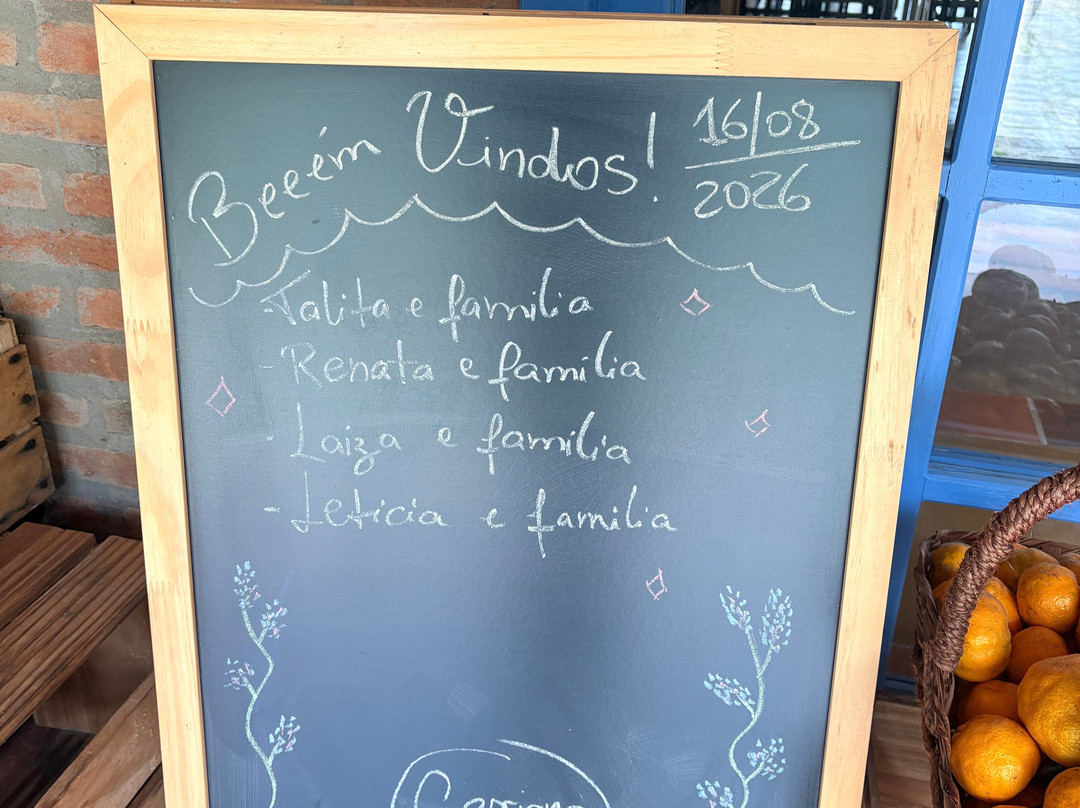 Beeém Vindos! 16/08
2026
-Talita e família
-Renata e família
-Laiza e família
-Leticia e familia